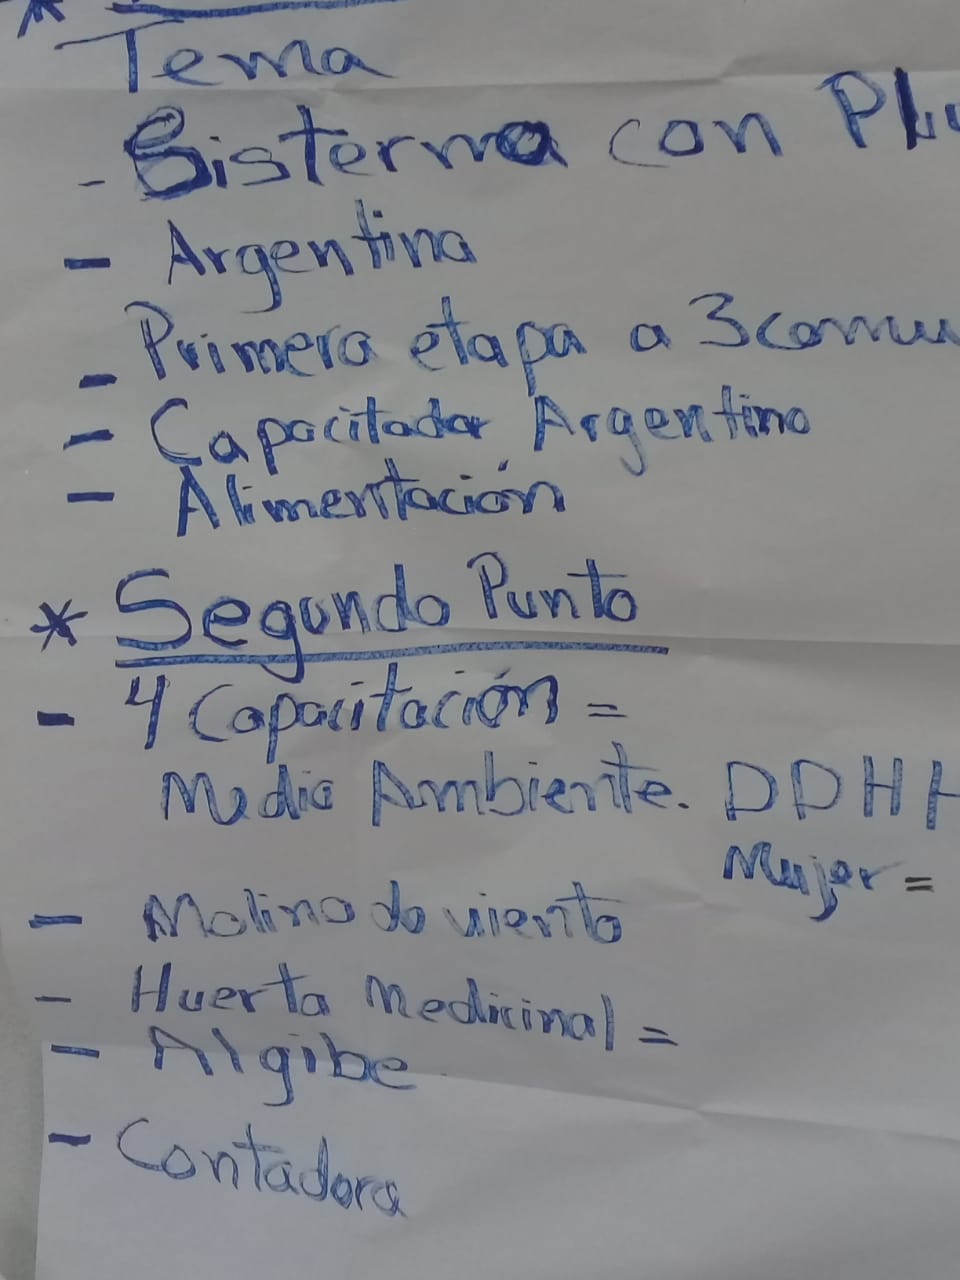 *
Tema
- Sisterna con Plu
- Argentina
- Primera etapa a 3 comu
- Capacitador Argentino
- Alimentación
* Segundo Punto
- 4 Capacitación =
Medio Ambiente. DDHH
Mujer =
- Molino de viento
- Huerta Medicinal =
- Algibe
- Contadora